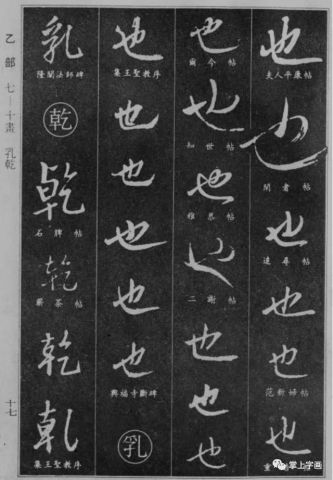 也
夫人平康帖
也
閒者帖
也
遠尋帖
也
也
范新婦帖
也
也
爾今帖
也
知世帖
也
雅恭帖
也
二謝帖
也
也
也
也
集王聖教序
也
也
也
也
也
興福寺斷碑
乳
乳
隆闡法師碑
乾
乾
石脾帖
乾
乾
乾
集王聖教序
乙部 七—十畫 孔乾
十七
掌上字画